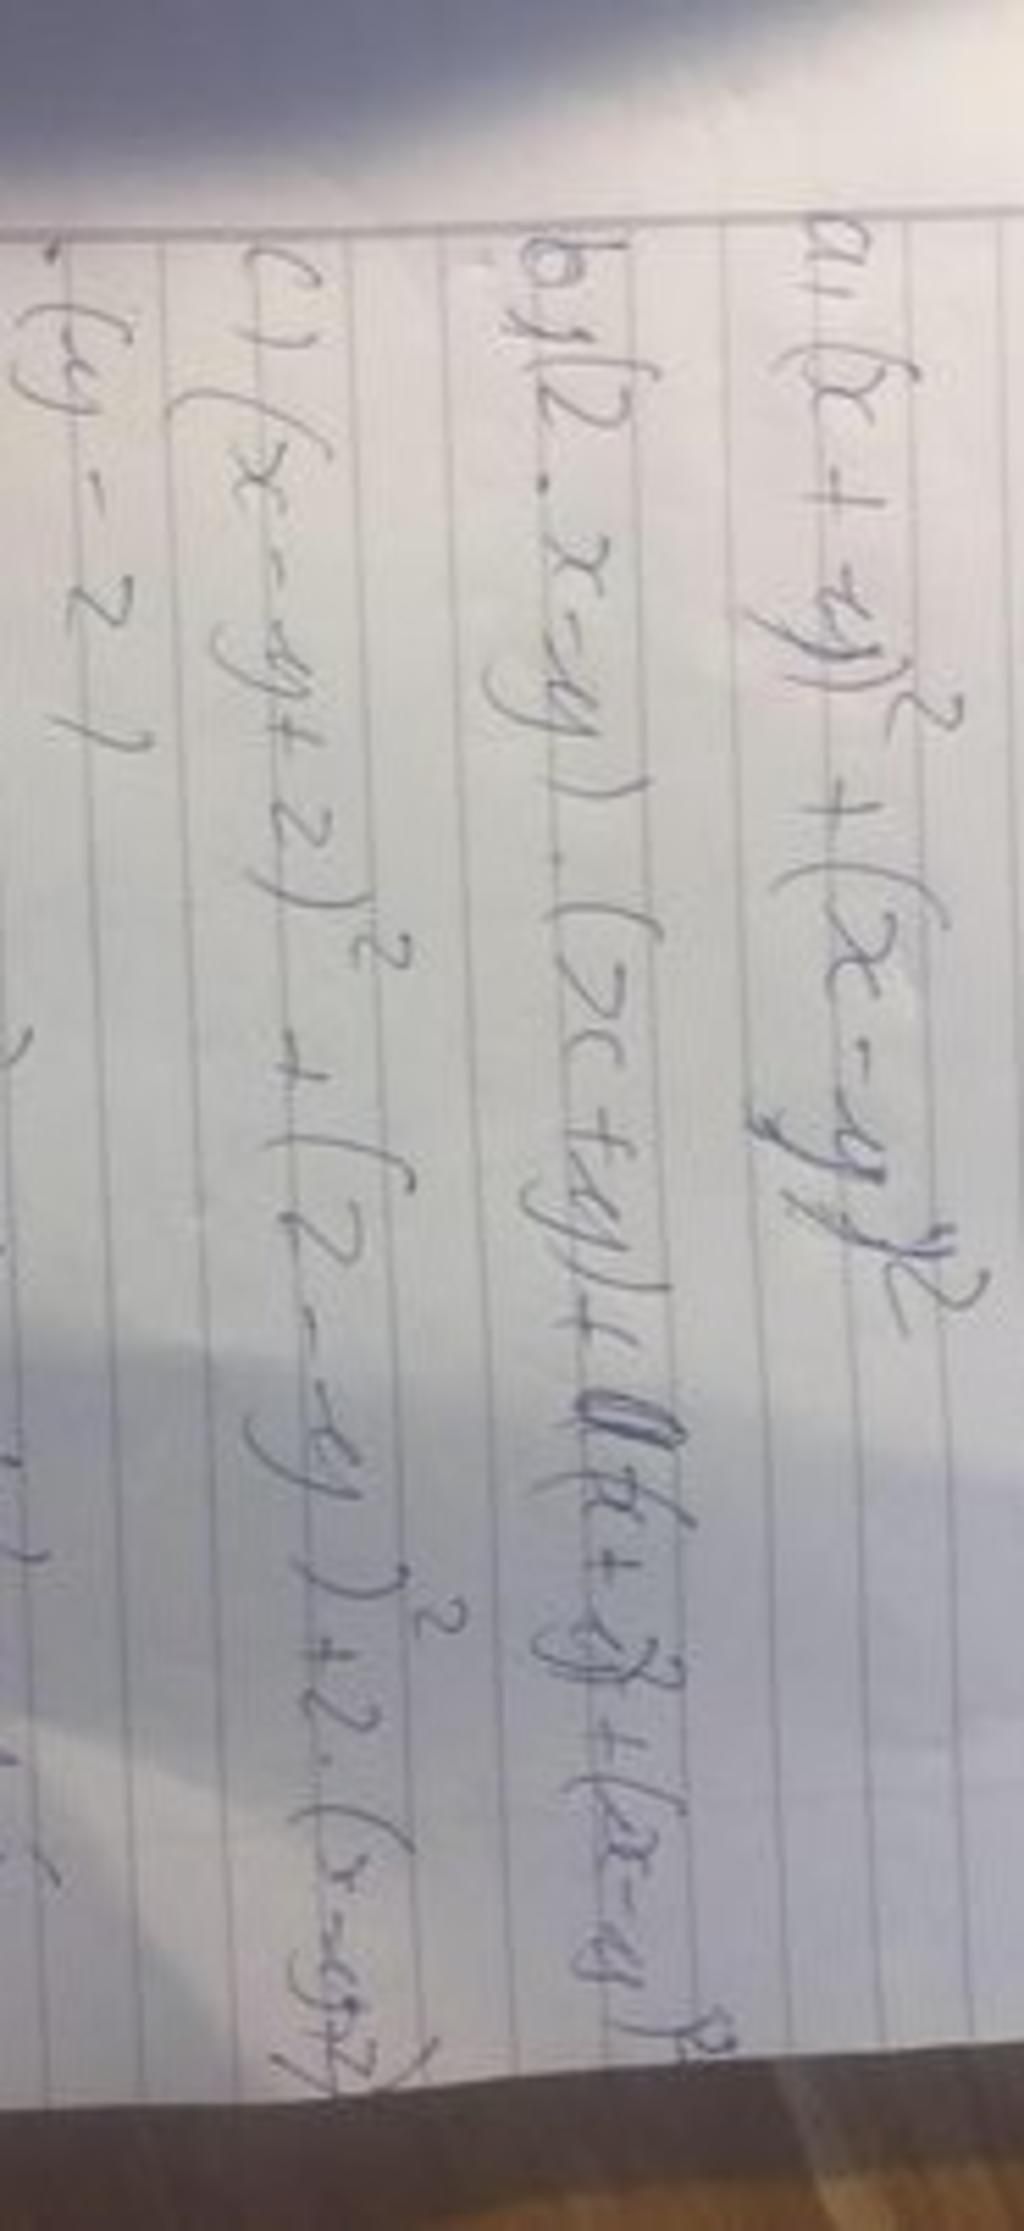 a, (x + y)² + (x - y)²
b, (2 . x - y) . (x + y) + (x + y)² + (x - y)²
c) (x - y + 2)² + (2 - y)² + 2 . (x - y + 2)
. (y - 2)